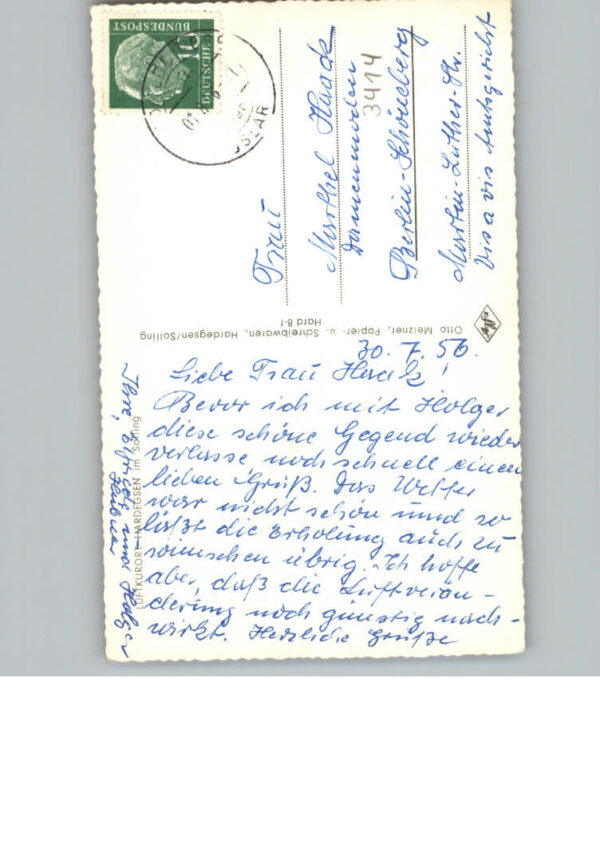 30. 7. 56.
Liebe Frau Haack!
Bevor ich mit Holger
diese schöne Gegend wieder
verlasse noch schnell einen
lieben Gruß. Das Wetter
war nicht schön und so
läßt die Erholung auch zu
wünschen übrig. Ich hoffe
aber, daß die Luftverän-
derung noch günstig nach-
wirkt. Herzliche Grüße
Ihre
und Holger
LUFTKURORT HARDEGSEN im Solling
Otto Meizner, Papier- u. Schreibwaren, Hardegsen/Solling
Hard 8-f
Frau
Marthel Haack
Damenmoden
Berlin-Schöneberg
Martin-Luther-Str.
Vis a vis Amtsgericht
3414
DEUTSCHE
BUNDESPOST
10